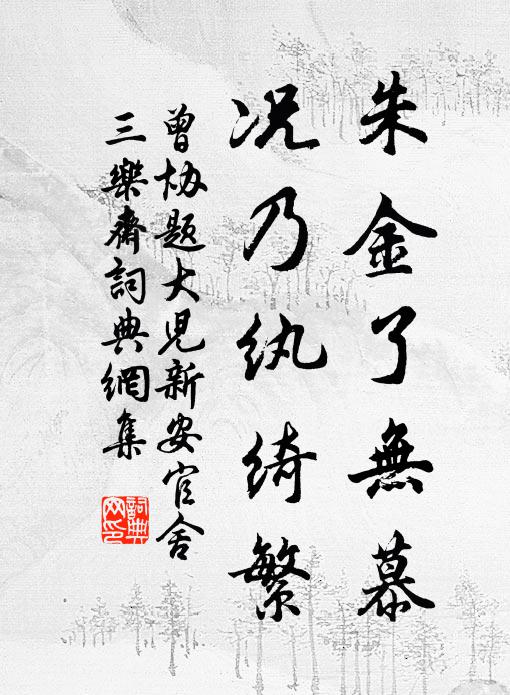 朱金了無慕
況乃紈綺繁
曾协題大児新安官舍
三樂齋詞典網集
詞典网印